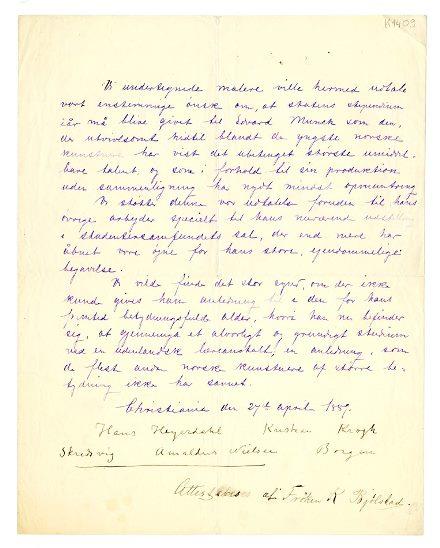 K 1409
Vi undertegnede malere ville hermed udtale
vort enstemmige ønske om, at statens stipendium
iår må blive givet til Edvard Munck som den,
der utvivlsomt hidtil blandt de yngste norske
kunstnere har vist det ubetinget største umiddel-
bare talent, og som i forhold til sin produktion
uden sammenligning har nydt mindst opmuntring
Vi støtte denne vor udtalelse foruden til hans
øvrige arbejder specielt til hans nuværende udstilling
i studentersamfundets sal, der end mere har
åbnet vore øine for hans store, eiendommelige
begavelse.
Vi vilde finde det stor synd, om der ikke
kunde gives ham anledning til i den for hans
fremtid betydningsfulde alder, hvori han nu befinder
sig, at gjennemgå et alvorligt og grundigt studium
ved en udenlandsk læreanstalt, en anledning, som
de fleste andre norske kunstnere af større be-
tydning ikke har savnet.
Christiania den 27de april 1889.
Hans Heyerdahl Kristian Krogh
Skredsvig Amaldus Nielsen Borgen
af Frøken K Bjølstad.